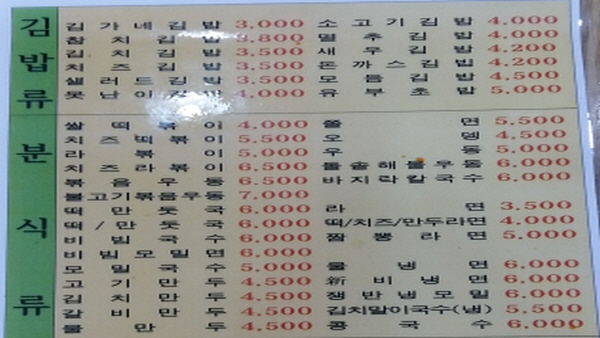 김밥류
김가네김밥 3,000
참치김밥 3,800
김치김밥 3,500
치즈김밥 3,500
샐러드김밥 3,500
못난이김밥 4,000
소고기김밥 4,000
멸추김밥 4,000
새우김밥 4,200
돈까스김밥 4,200
모듬김밥 4,500
유부초밥 5,000
분식류
쌀떡볶이 4,000
치즈떡볶이 5,500
라볶이 5,500
치즈라볶이 6,500
볶음우동 6,500
불고기볶음우동 7,000
떡만둣국 6,000
떡/만둣국 6,000
비빔국수 6,000
비빔모밀면 6,000
모밀국수 5,000
고기만두 4,500
김치만두 4,500
갈비만두 4,500
물만두 4,500
쫄면 5,500
오뎅 4,500
우동 5,000
돌솥해물우동 6,000
바지락칼국수 6,000
라면 3,500
떡/치즈/만두라면 4,000
짬뽕라면 5,000
물냉면 6,000
新비냉면 6,000
쟁반냉모밀 6,000
김치말이국수(냉) 5,500
콩국수 6,000